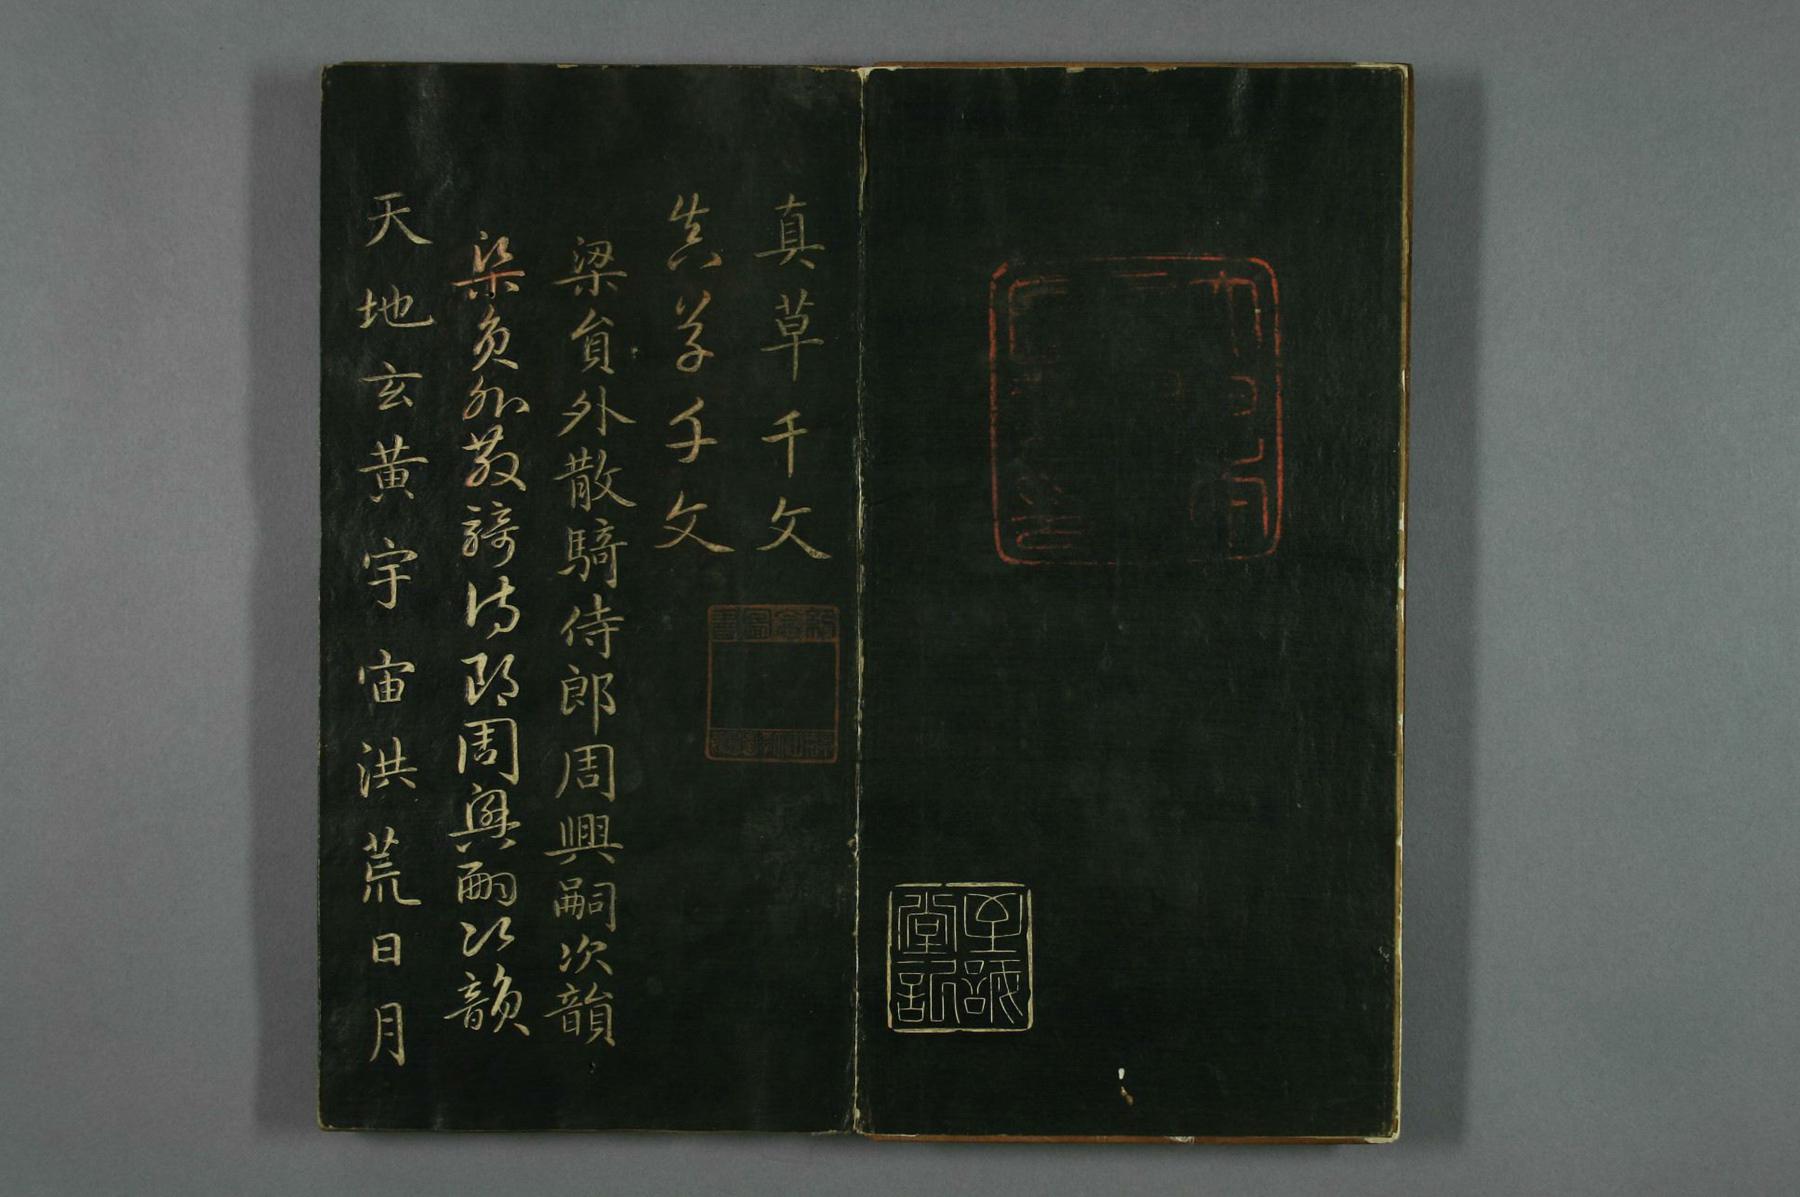 至誠
堂記
真草千文
真草千文
梁員外散騎侍郎周興嗣次韻
梁員外散騎侍郎周興嗣次韻
天地玄黃宇宙洪荒日月